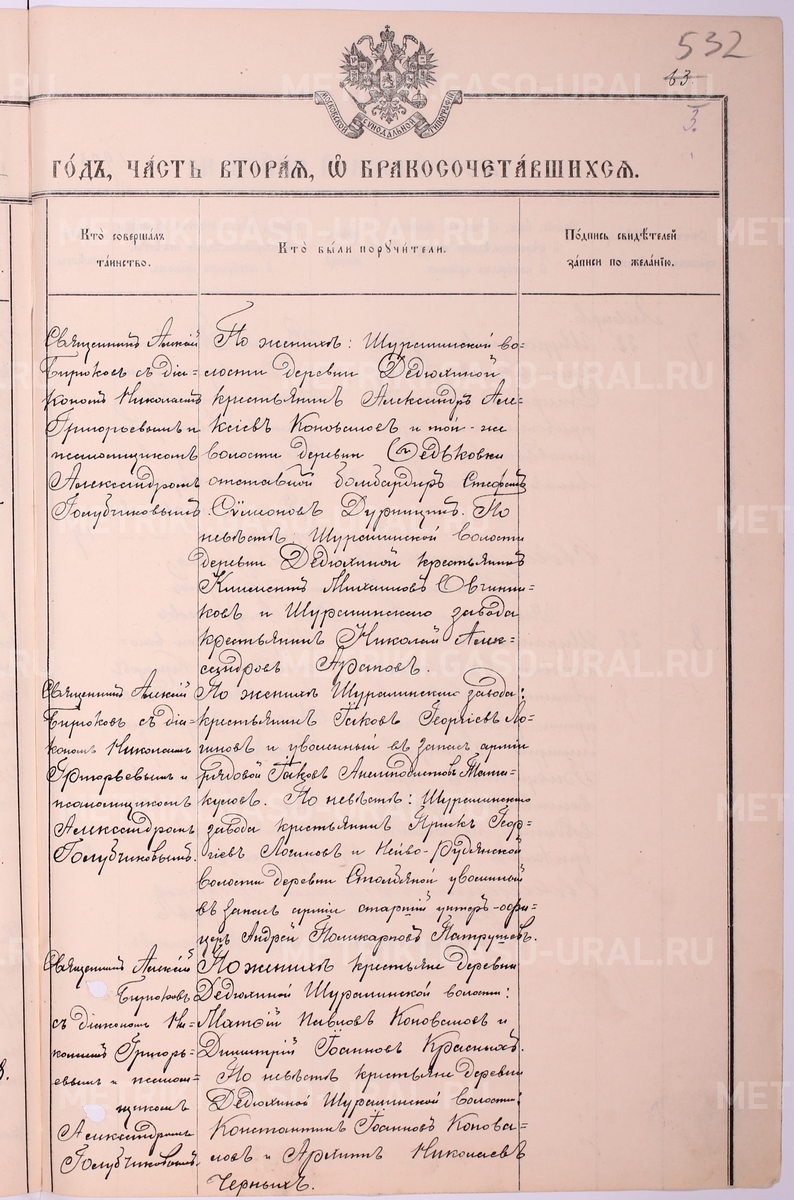 532
63.
3.
МОСКОВСКОЙ СѴНОДАЛЬНОЙ ТИПОГРАФІИ
ГО́ДЪ, ЧА́СТЬ ВТОРА́Я, Ѡ҆ БРАКОСОЧЕТА́ВШИХСЯ.
Кто̀ соверша́лъ
та́инство.
Кто̀ бы́ли поручи́тели.
По́дпись свидѣ́телей
за́писи по жела́нію.
Священникъ Алексій
Бирюковъ съ діа-
кономъ Николаемъ
Григорьевымъ и
псаломщикомъ
Александромъ
Голубчиковымъ.
По женихѣ: Шуралинской во-
лости деревни Дедюхиной
крестьянинъ Александръ Але-
ксіевъ Коноваловъ и той-же
волости деревни Ѳедьковки
отставной бомбардиръ Стефанъ
Сѵмеоновъ Дурницинъ. По
невѣстѣ: Шуралинской волости
деревни Дедюхиной крестьянинъ
Климентъ Михаиловъ Овчинни-
ковъ и Шуралинскаго завода
крестьянинъ Николай Алек-
сандровъ Араповъ.
Священникъ Алексій
Бирюковъ съ діа-
кономъ Николаемъ
Григорьевымъ и
псаломщикомъ
Александромъ
Голубчиковымъ.
По женихѣ Шуралинскаго завода:
крестьянинъ Іаковъ Георгіевъ Ло-
гиновъ и уволенный въ запасъ арміи
рядовой Іаковъ
По невѣстѣ: Шуралинскаго
завода крестьянинъ Геор-
гіевъ Лосимовъ и Нейво-Рудянской
волости деревни уволенный
въ запасъ арміи старшій унтеръ-офи-
церъ Андрей Поликарповъ Патрушевъ.
Священникъ Алексій
Бирюковъ
съ діакономъ Ни-
колаемъ Григорь-
евымъ и псалом-
щикомъ
Александромъ
Голубчиковымъ.
По женихѣ крестьяне деревни
Дедюхиной Шуралинской волости:
Матѳій Павловъ Коноваловъ и
Димитрій Іоанновъ Красныхъ.
По невѣстѣ крестьяне деревни
Дедюхиной Шуралинской волости:
Константинъ Іоанновъ Конова-
ловъ и Николаевъ
Черныхъ.
METRIKI.GASO-URAL.RU